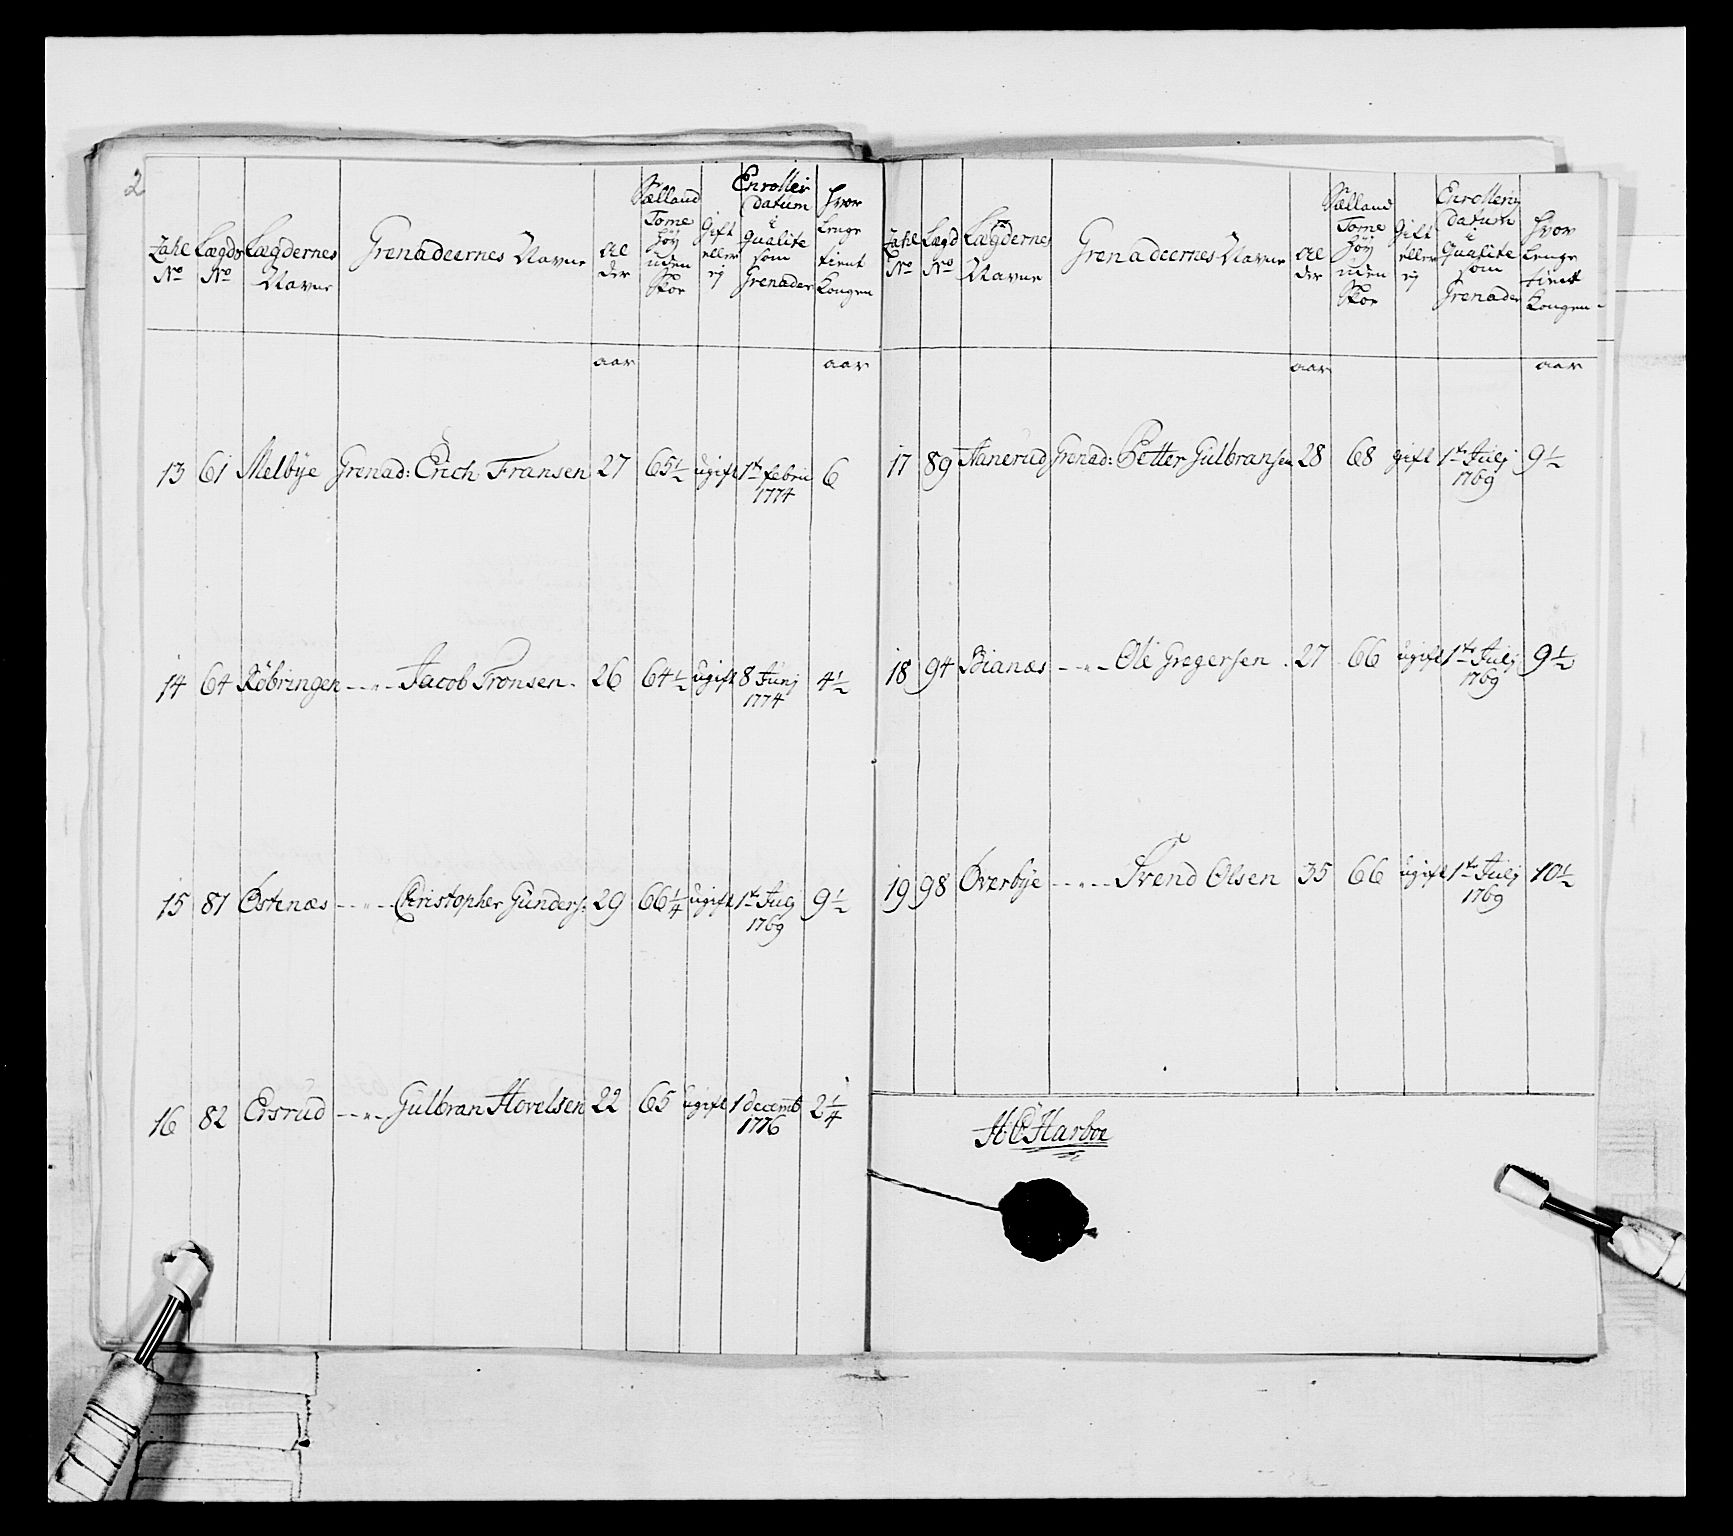 2
Zahl No | Lægds No | Lægdernes Navne | Grenadeernes Navne | Al der | Sælland Tome höy uden Skoe | Gift eller ej | Enrollir datum i Qualite som Grenader | hvor lenge tient Kongen
aar | aar
13 | 61 | Melbye | Grenad: Erich Fransen | 27 | 65 1/2 | ugift | 1te febru 1774 | 6
14 | 64 | Röbringen | – „ – Jacob Tronsen | 26 | 64 1/2 | ugift | 8 Junj 1774 | 4 1/2
15 | 87 | Östenæs | – „ – Christopher Gunders: | 29 | 66 1/4 | ugift | 1te Julj 1769 | 9 1/2
16 | 82 | Ersrud | – „ – Gulbran Hovelsen | 22 | 65 | ugift | 1 decemb 1776 | 2 1/4
Zahl No | Lægd No | Lægdernes Navne | Grenadeernes Navne | Al der | Sælland Tome höy uden Skoe | Gift eller ej | Enrollerings datum i Qualite som Grenader | hvor lenge tient Kongen
aar | aar
17 | 89 | Hanerud | Grenad: Petter Gulbransen | 28 | 68 | gift | 1te Julj 1769 | 9 1/2
18 | 94 | Bianæs | – „ – Ole Gregersen | 27 | 66 | ugift | 1te Julj 1769 | 9 1/2
19 | 98 | Overbye | – „ – Svend Olsen | 35 | 66 | ugift | 1te Julj 1769 | 10 1/2
H: C Harboe